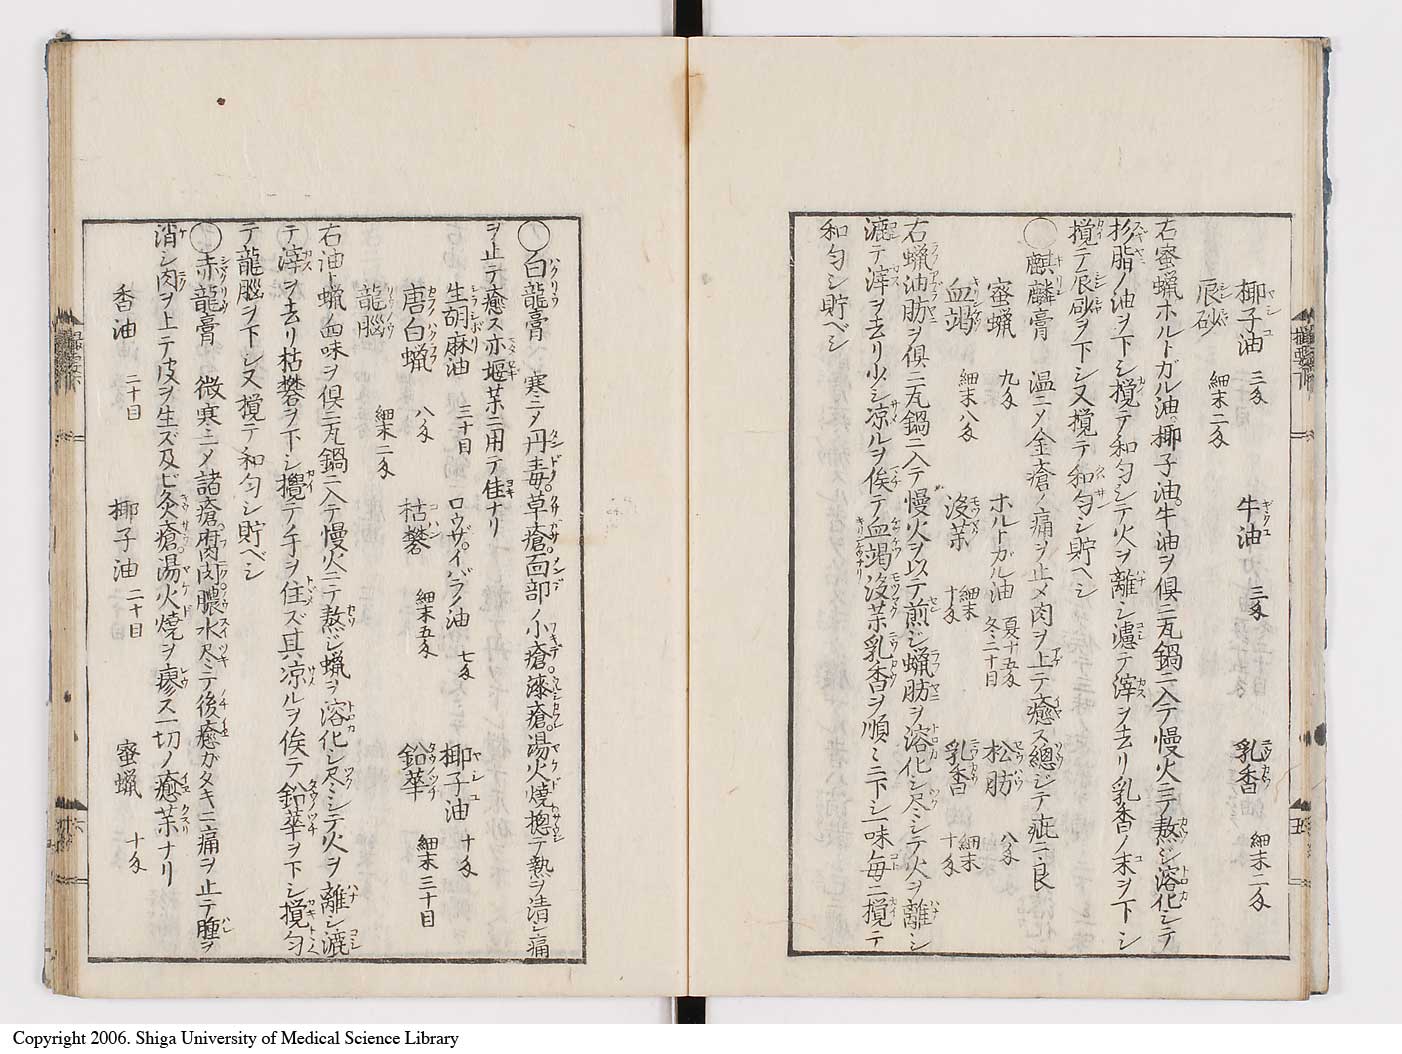 椰子油 三匁 牛油 三匁 乳香 細末二匁
辰砂 細末二匁
右蜜蝋ホルトガル油椰子油牛油ヲ倶ニ瓦鍋ニ入テ慢火ニテ熬シ溶化シテ
杉脂ノ油ヲ下シ攪テ和匀シテ火ヲ離シ濾テ滓ヲ去リ乳香ノ末ヲ下シ
攪テ辰砂ヲ下シ又攪テ和匀シ貯ヘシ
○麒麟膏 温ニメ金瘡ノ痛ヲ止メ肉ヲ上テ癒ス總ジテ疵ニ良
蜜蝋 九匁 ホルトガル油 夏十五匁 冬三十目 松肪 八匁
血竭 細末八匁 没薬 細末十匁 乳香 細末十匁
右蝋油肪ヲ倶ニ瓦鍋ニ入テ慢火ヲ以テ煎ジ蝋肪ヲ溶化シ尽シテ火ヲ離シ
漉テ滓ヲ去リ少シ凉ルヲ俟テ血竭没薬乳香ヲ順ミニ下シ一味毎ニ攪テ
和匀シ貯ベシ
○白龍膏 寒ニメ丹毒草瘡面部ノ小瘡漆瘡湯火焼摠テ熱ヲ清シ痛
ヲ止テ癒ス亦堀薬ニ用テ佳ナリ
生胡麻油 三十目 ロウザイバラノ油 七匁 椰子油 十匁
唐白蝋 八匁 枯礬 細末五匁 鉛華 細末三十目
龍脳 細末二匁
右油ト蝋ノ四味ヲ倶ニ瓦鍋ニ入テ慢火ニテ熬ジ蝋ヲ溶化シ尽シテ火ヲ離シ漉
テ滓ヲ去リ枯礬ヲ下シ攪テ手ヲ住ズ其凉ルヲ俟テ鈆華ヲ下シ攪匀
テ龍脳ヲ下シ又攪テ和匀シ貯ベシ
○赤龍膏 微寒ニメ諸瘡腐肉膿水尽ミテ後癒ガタキニ痛ヲ止テ腫ヲ
消シ肉ヲ上テ皮ヲ生ズ及ビ灸瘡湯火焼ヲ療ス一切ノ癒薬ナリ
香油 二十目 椰子油 二十目 蜜蝋 十匁
Copyright 2006. Shiga University of Medical Science Library